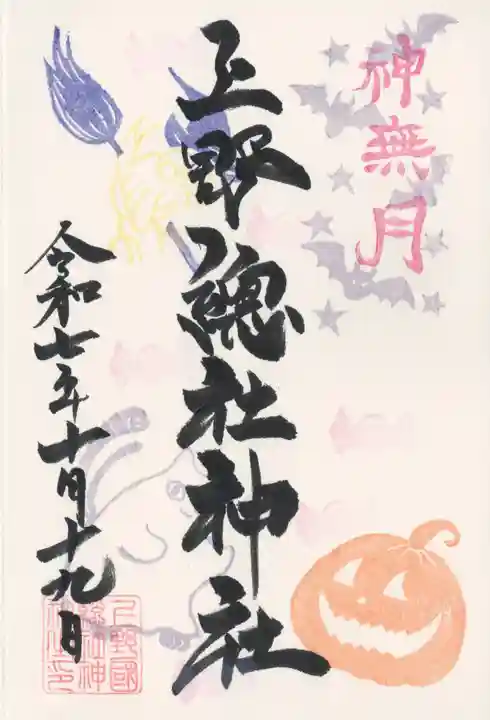 神無月
上野總社神社
令和七年十月十九日
上野國
総社神
社印